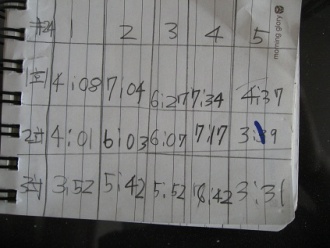 morning glory
1 2 3 4 5
4:08 7:04 6:27 7:34 4:37
4:01 6:03 6:07 7:17 3:19
3:52 5:42 5:52 6:42 3:31